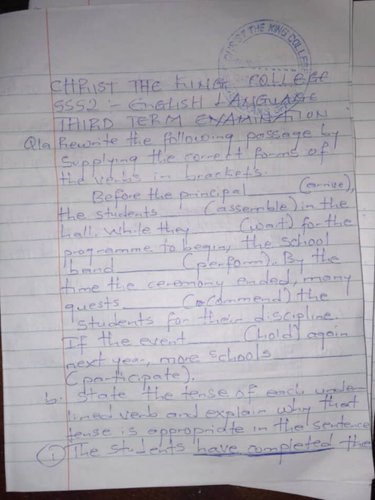 CHRIST THE KING COLLEGE
CHRIST THE KING COLLEGE
SSS2 :- ENGLISH LANGUAGE
THIRD TERM EXAMINATION
Q1a Rewrite the following passage by
supplying the correct forms of
the verbs in brackets.
Before the principal ______ (arrive),
the students ______ (assemble) in the
hall. While they ______ (wait) for the
programme to begin, the school
band ______ (perform). By the
time the ceremony ended, many
guests ______ (commend) the
students for their discipline.
If the event ______ (hold) again
next year, more schools ______
(participate).
b. State the tense of each under-
lined verb and explain why that
tense is appropriate in the sentence
(1) The students have completed the